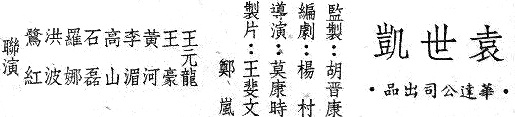 袁世凱
・華達公司出品・
監製：胡晉康
編劇：楊村
導演：莫康時
製片：王斐文
鄭嵐
王元龍
王豪
黃河
李湄
高山
石磊
羅娜
洪波
鷺紅
聯演